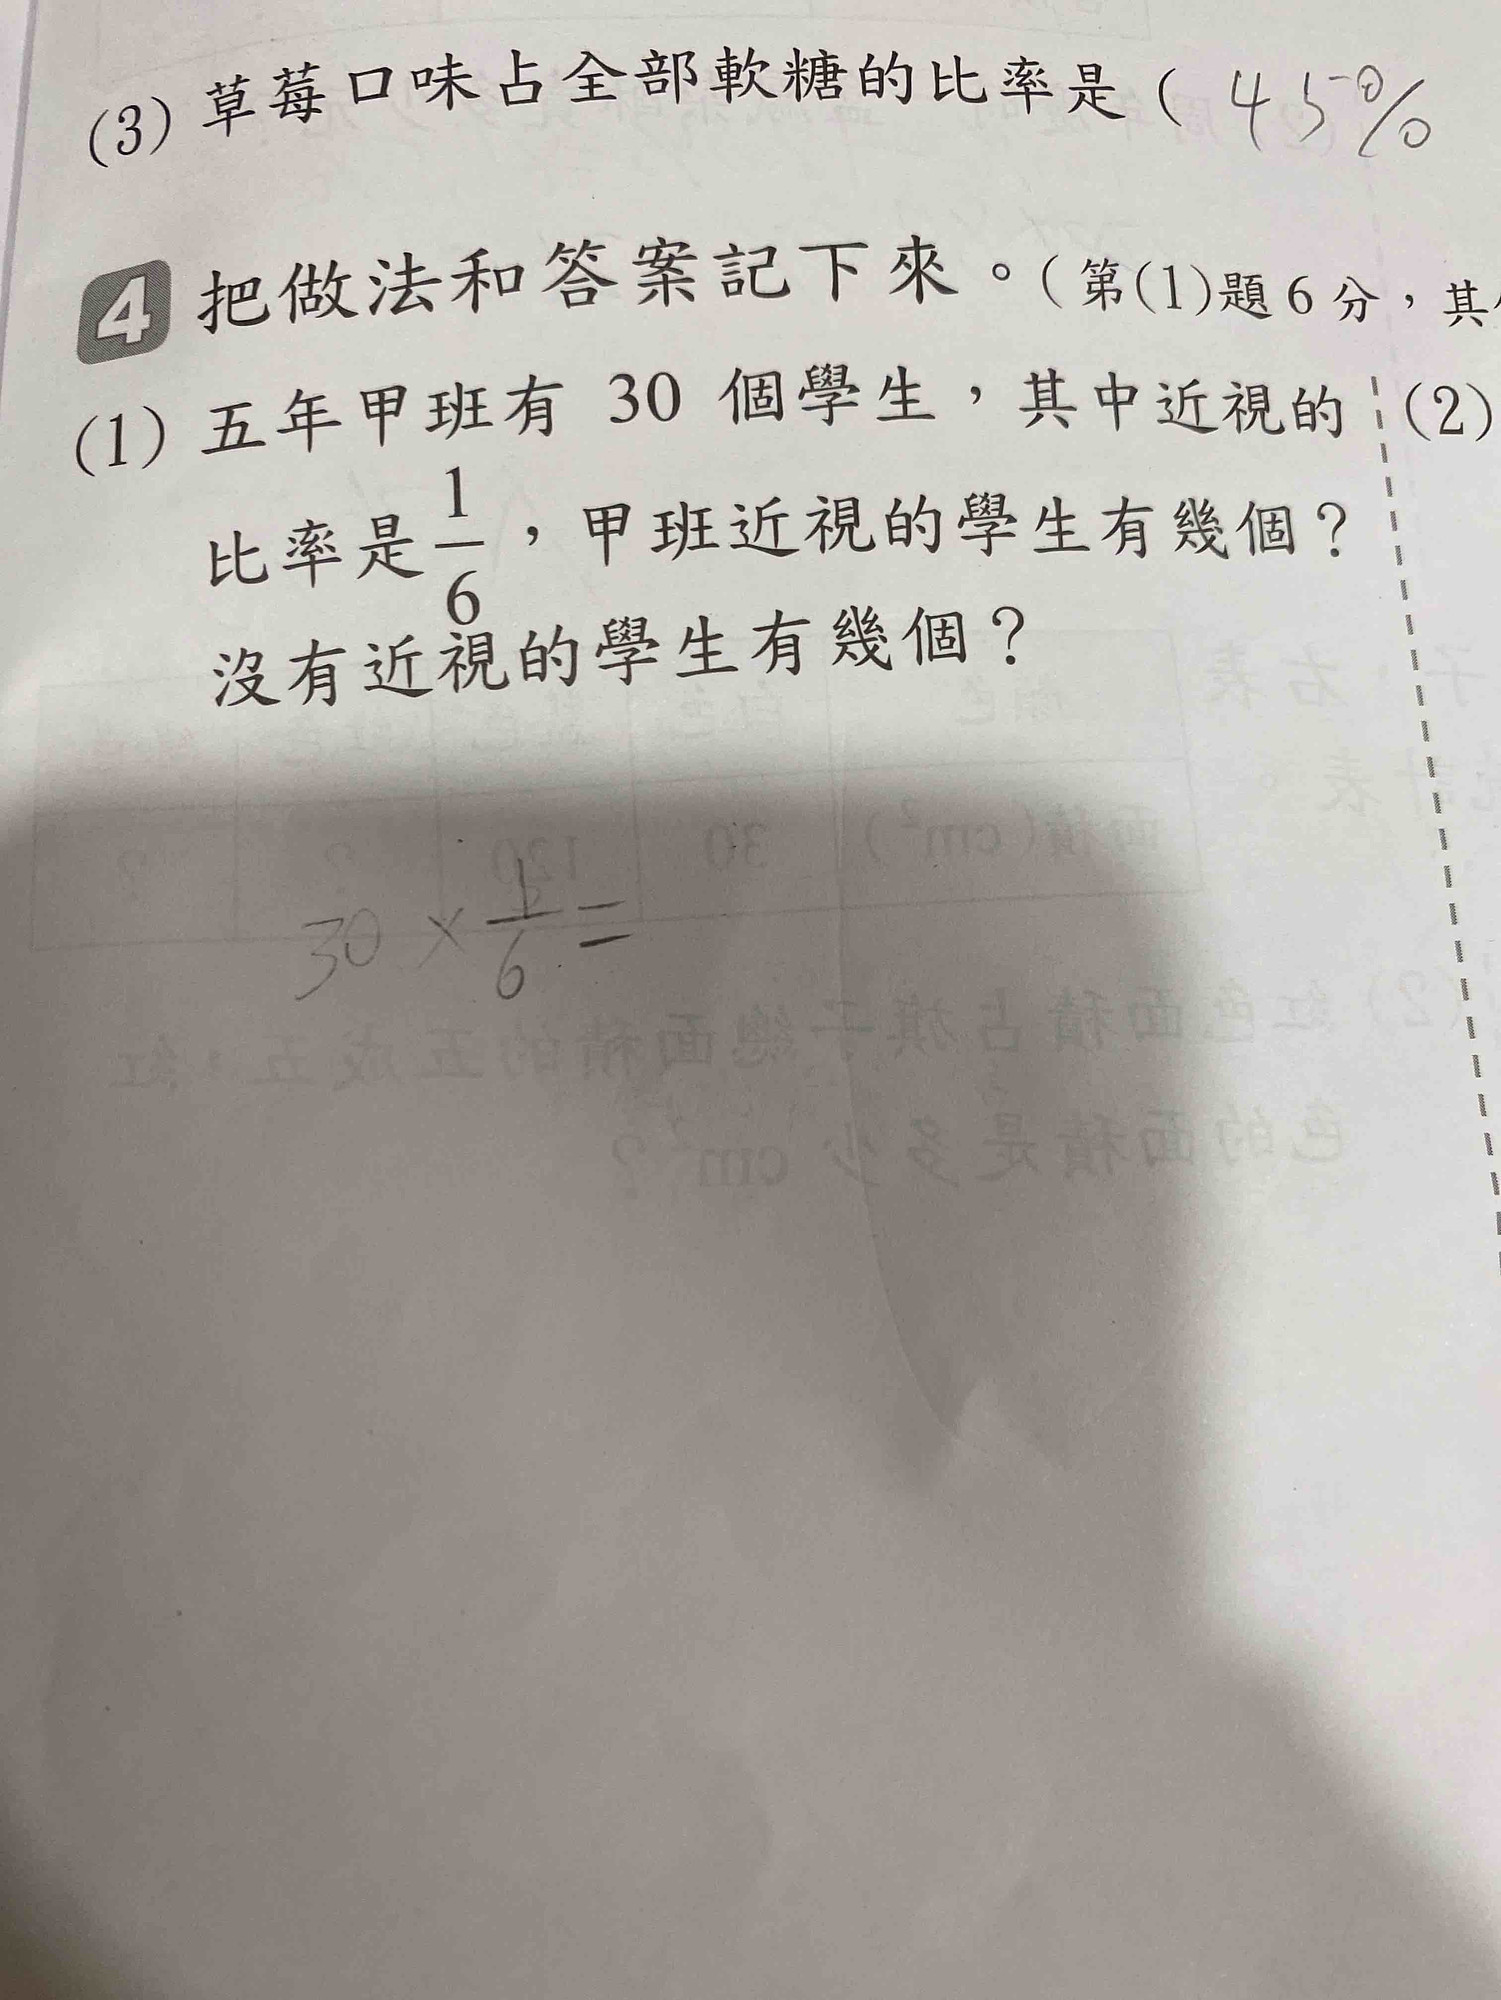 (3) 草莓口味占全部軟糖的比率是 ( 45%
4 把做法和答案記下來。(第(1)題6分，其
(1) 五年甲班有 30 個學生，其中近視的
比率是1/6，甲班近視的學生有幾個？
沒有近視的學生有幾個？
(2)
30 × 1/6 =